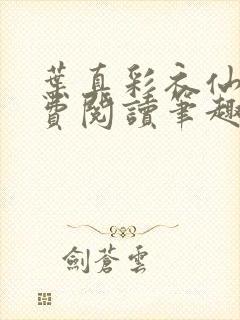 葉真彩衣仙
費閱讀筆趣
劍蒼雲